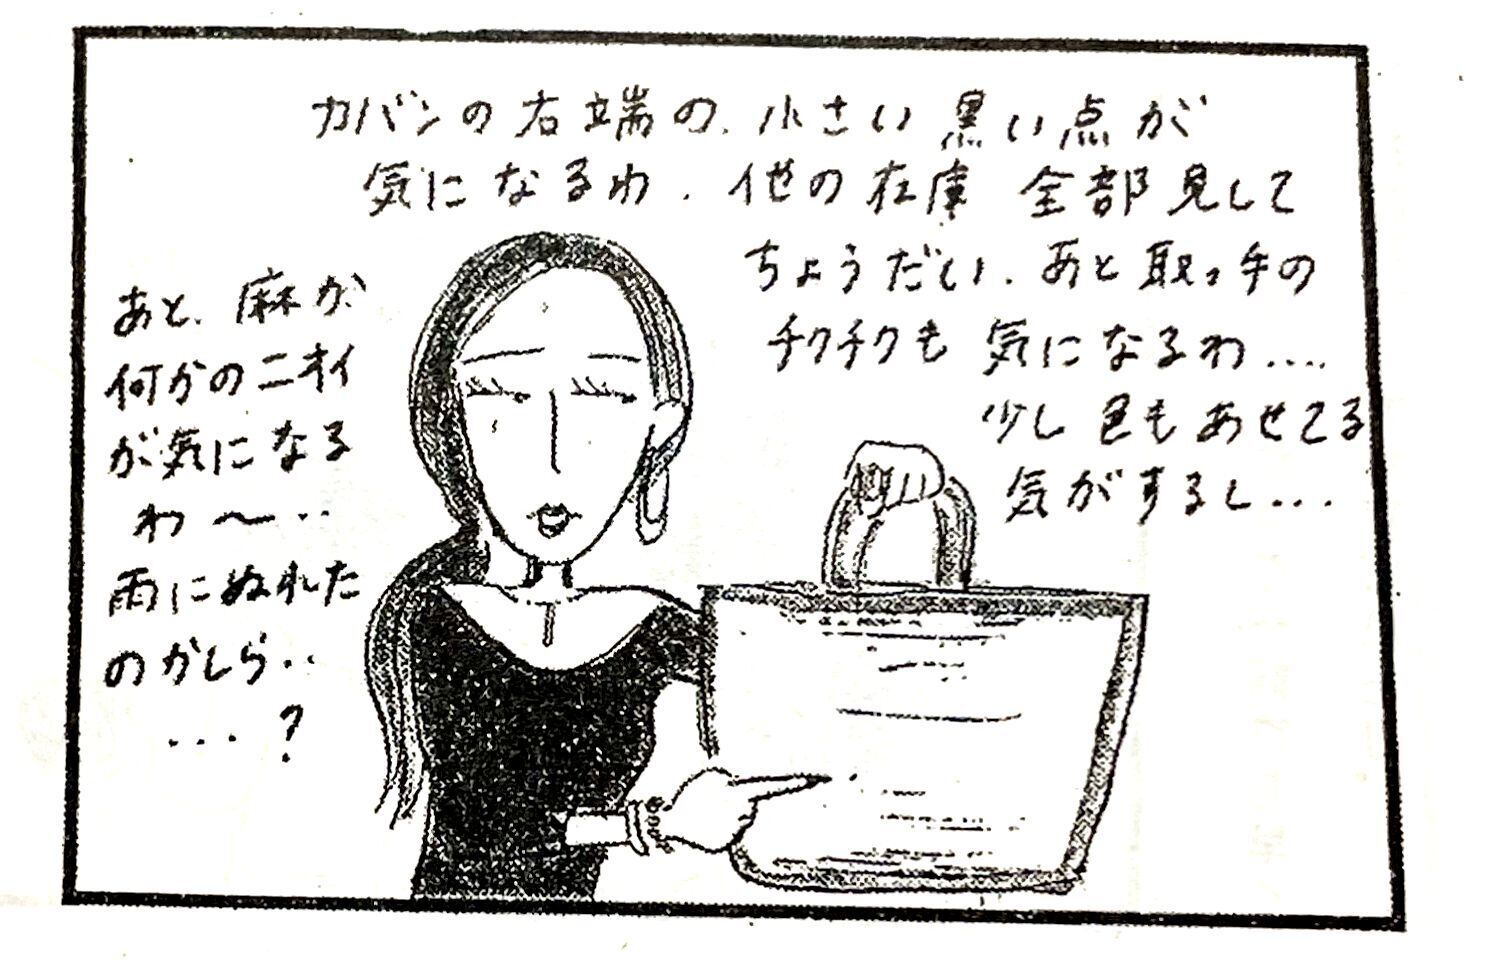 カバンの右端の、小さい黒い点が
気になるわ、他の在庫 全部見して
ちょうだい、あと取っ手の
チクチクも 気になるわ....
少し色もあせてる
気がするし...
あと、麻か
何かのニオイ
が気になる
わ〜...
雨にぬれた
のかしら..
...?